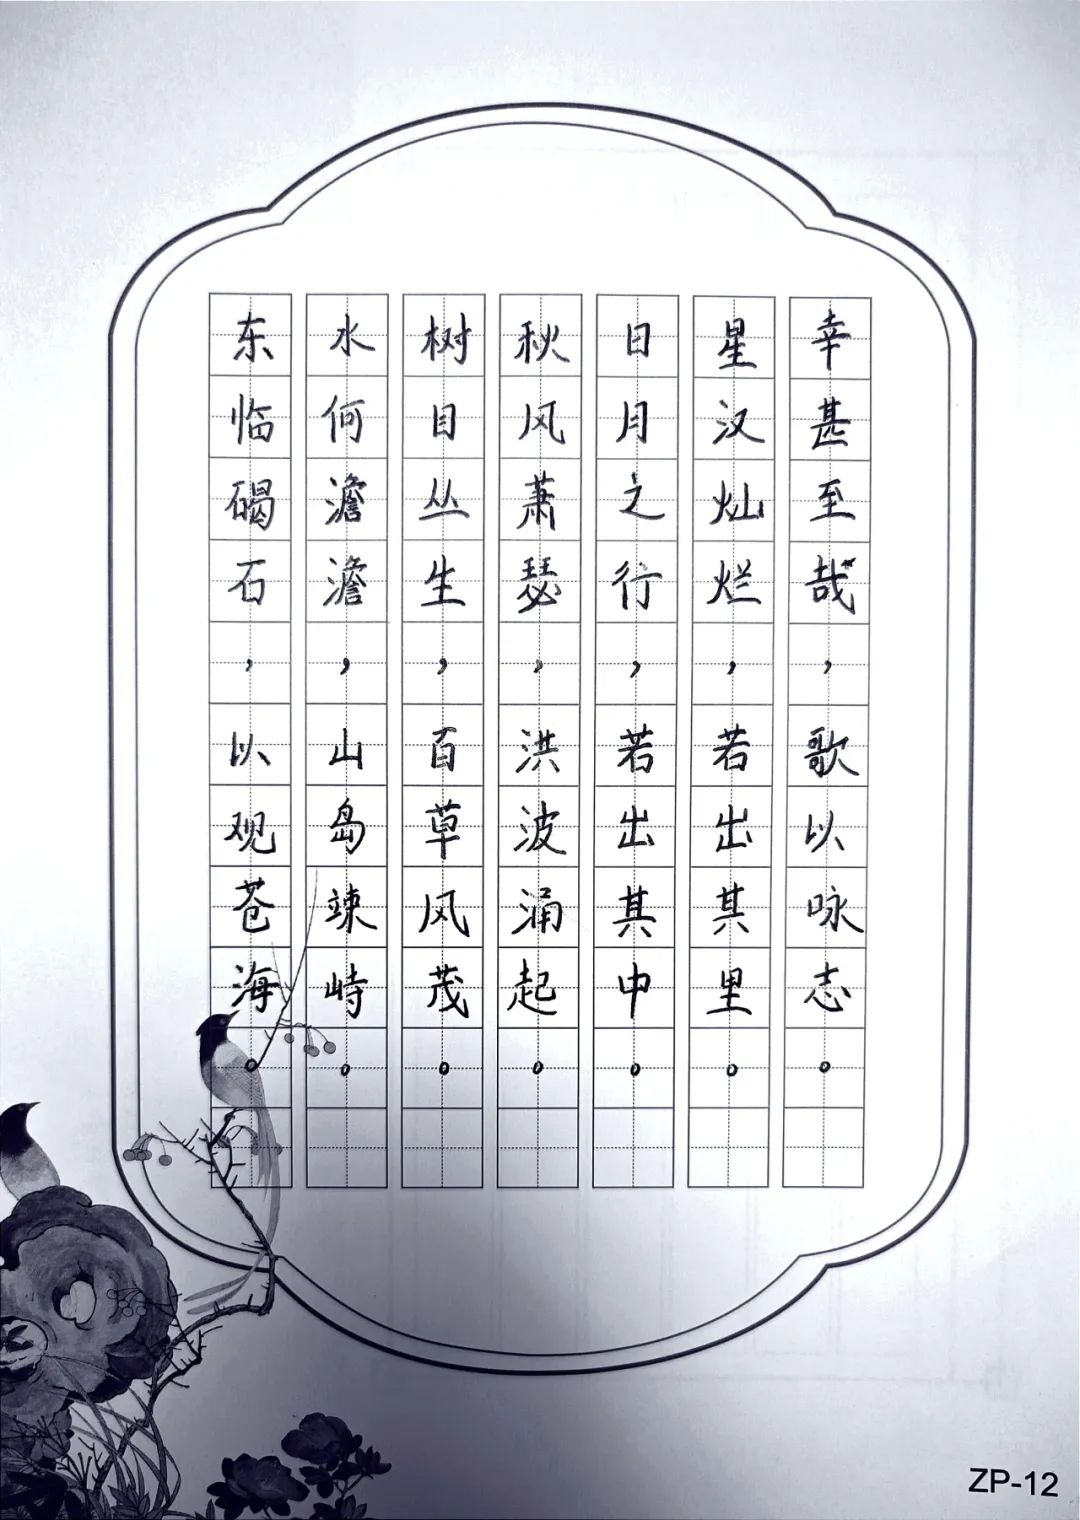 东临碣石，以观苍海。
水何澹澹，山岛竦峙。
树目丛生，百草风茂。
秋风萧瑟，洪波涌起。
日月之行，若出其中。
星汉灿烂，若出其里。
幸甚至哉，歌以咏志。
ZP-12